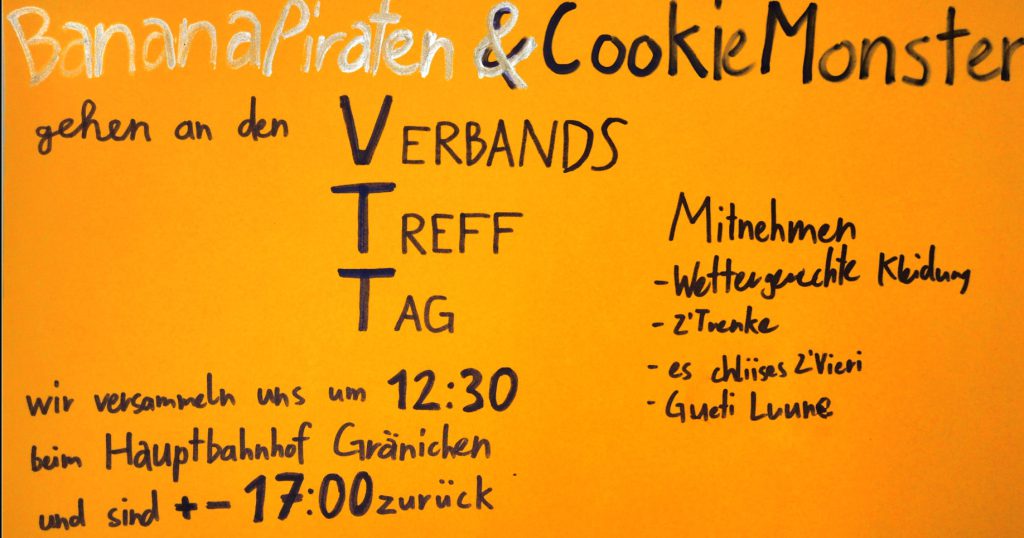 BananaPiraten & CookieMonster
gehen an den
VERBANDS
TREFF
TAG
wir versammeln uns um 12:30
beim Hauptbahnhof Gränichen
und sind +- 17:00 zurück
Mitnehmen
- Wettergerechte Kleidung
- z'Trenke
- es chliises Z'Vieri
- Gueti Luune